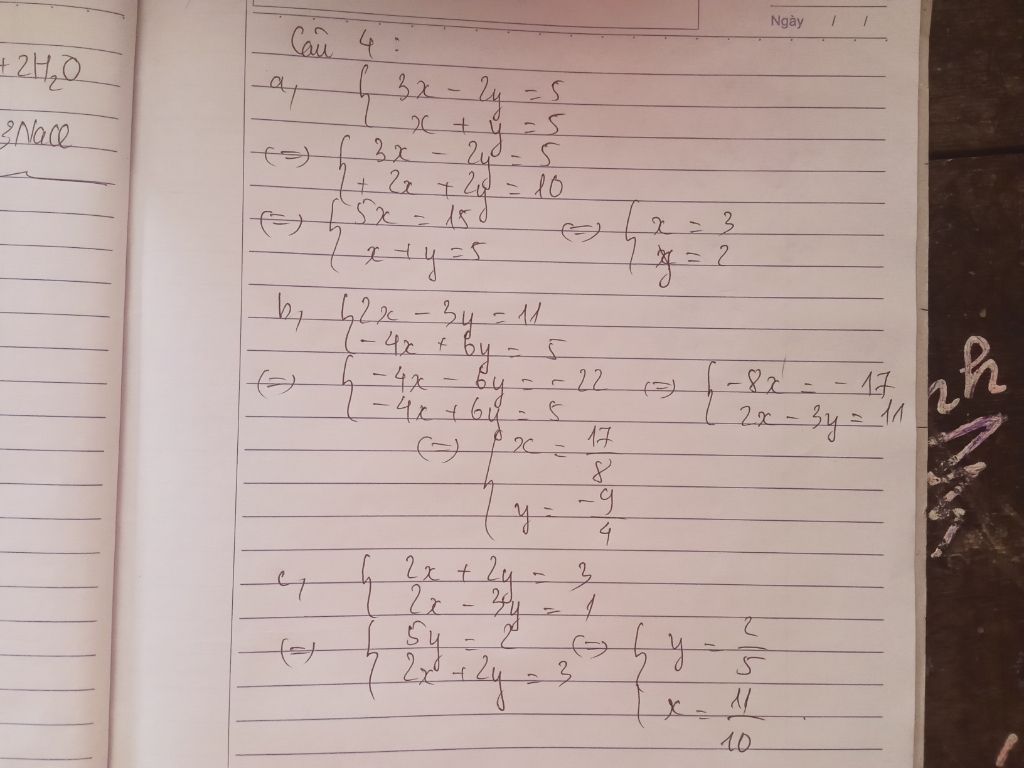 + 2H₂O
3NaCl
Ngày / /
Câu 4 :
a, { 3x - 2y = 5
x + y = 5
(=) { 3x - 2y = 5
+ 2x + 2y = 10
(=) { 5x = 15 (=) { x = 3
x + y = 5 y = 2
b, { 2x - 3y = 11
-4x + 6y = 5
(=) { -4x - 6y = -22 (=) { -8x = -17
-4x + 6y = 5 2x - 3y = 11
(=) { x = 17/8
y = -9/4
c, { 2x + 2y = 3
2x - 3y = 1
(=) { 5y = 2 (=) { y = 2/5
2x + 2y = 3
x = 11/10